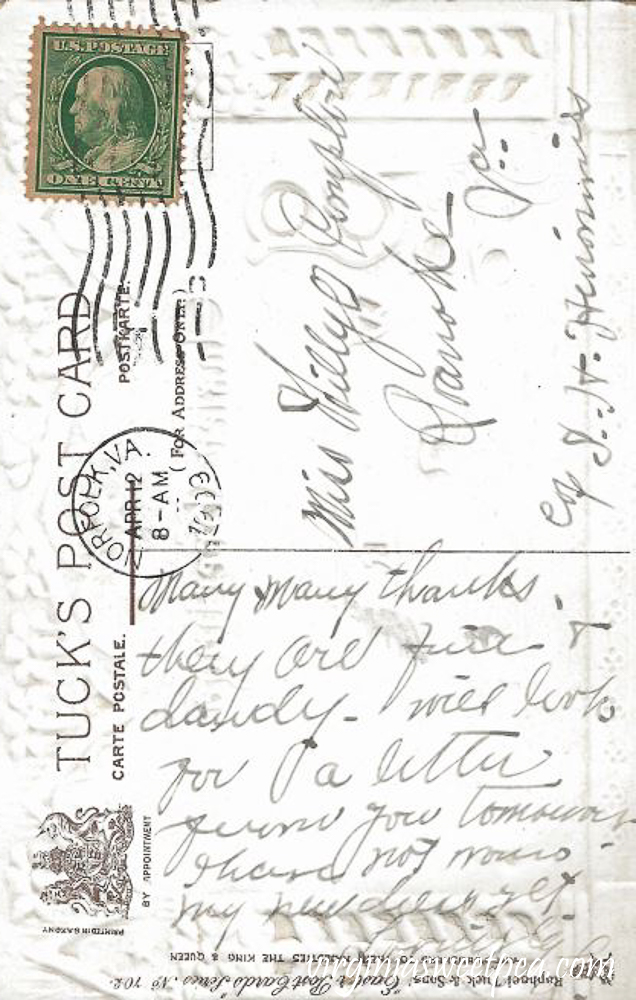 U.S. POSTAGE
ONE CENT
TUCK'S POST CARD
CARTE POSTALE.
POSTKARTE.
(FOR ADDRESS ONLY.)
NORFOLK, VA.
APR 12
8-AM
BY APPOINTMENT
PRINTED IN SAXONY
Miss Willye Compton
Roanoke
Va.
Many many thanks.
they are fine &
dandy - will look
for a letter
from you tomorrow
I have not worn
my new
Raphael Tuck & Sons' "Easter" Post Cards Series No 702.
TO THEIR MAJESTIES THE KING & QUEEN
virginiasweetpea.com